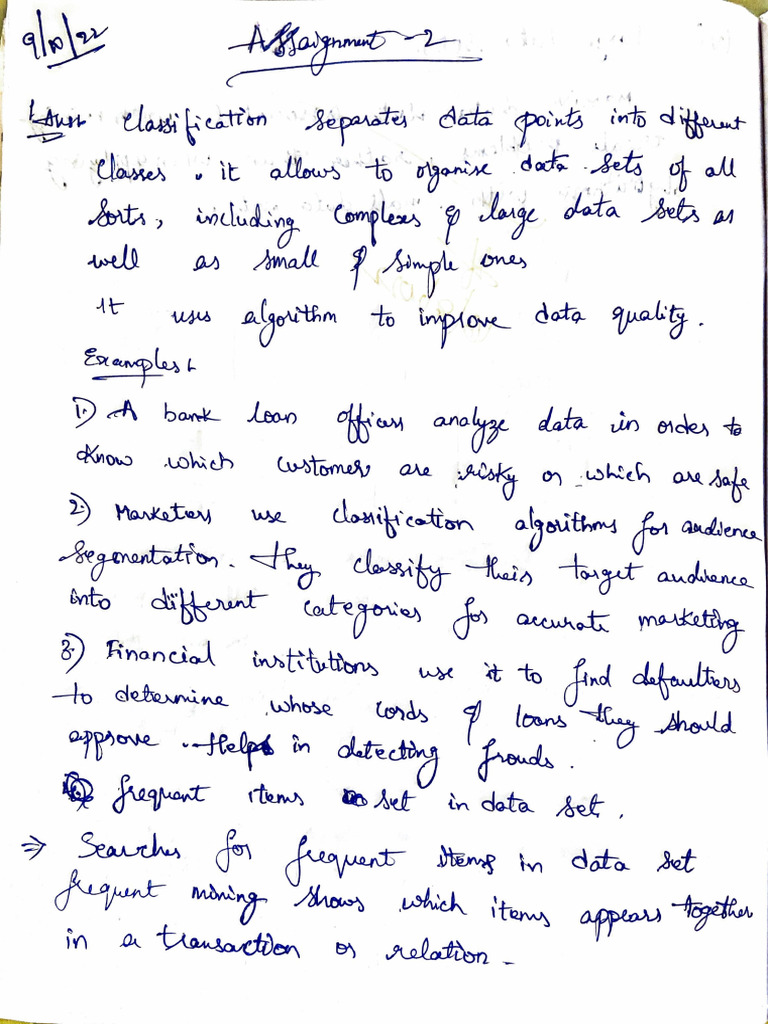 9/10/22
Assaignment - 2
1. Ans. Classification separates data points into different
classes. it allows to organise data sets of all
sorts, including complexes & large data sets as
well as small & simple ones
It uses algorithm to improve data quality.
Examples:
1.) A bank loan officers analyze data in order to
know which customer are risky or which are safe
2.) Marketers use classification algorithms for audience
segmentation. They classify their target audience
into different categories for accurate marketing
3.) Financial institutions use it to find defaulters
to determine whose cards & loans they should
approve. Helps in detecting frouds.
frequent items set in data set.
⇒ Searches for frequent items in data set
frequent mining shows which items appears together
in a transaction or relation.